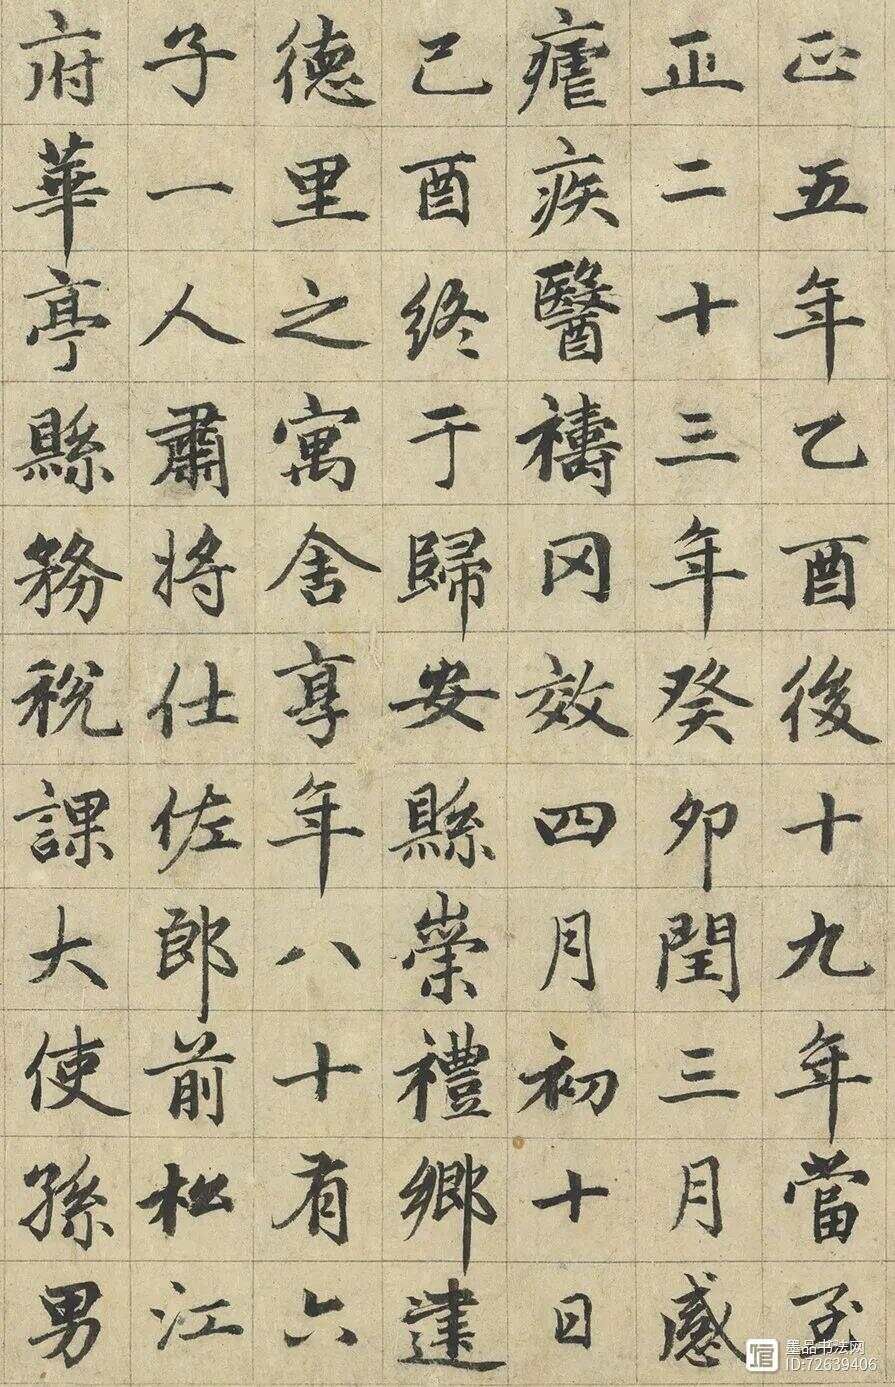 正五年乙酉後十九年當至
正二十三年癸卯閏三月感
瘧疾醫禱罔效四月初十日
己酉終于歸安縣崇禮鄉建
德里之寓舍享年八十有六
子一人肅將仕佐郎前松江
府華亭縣務稅課大使孫男
馆 墨品书法网
ID:72639406